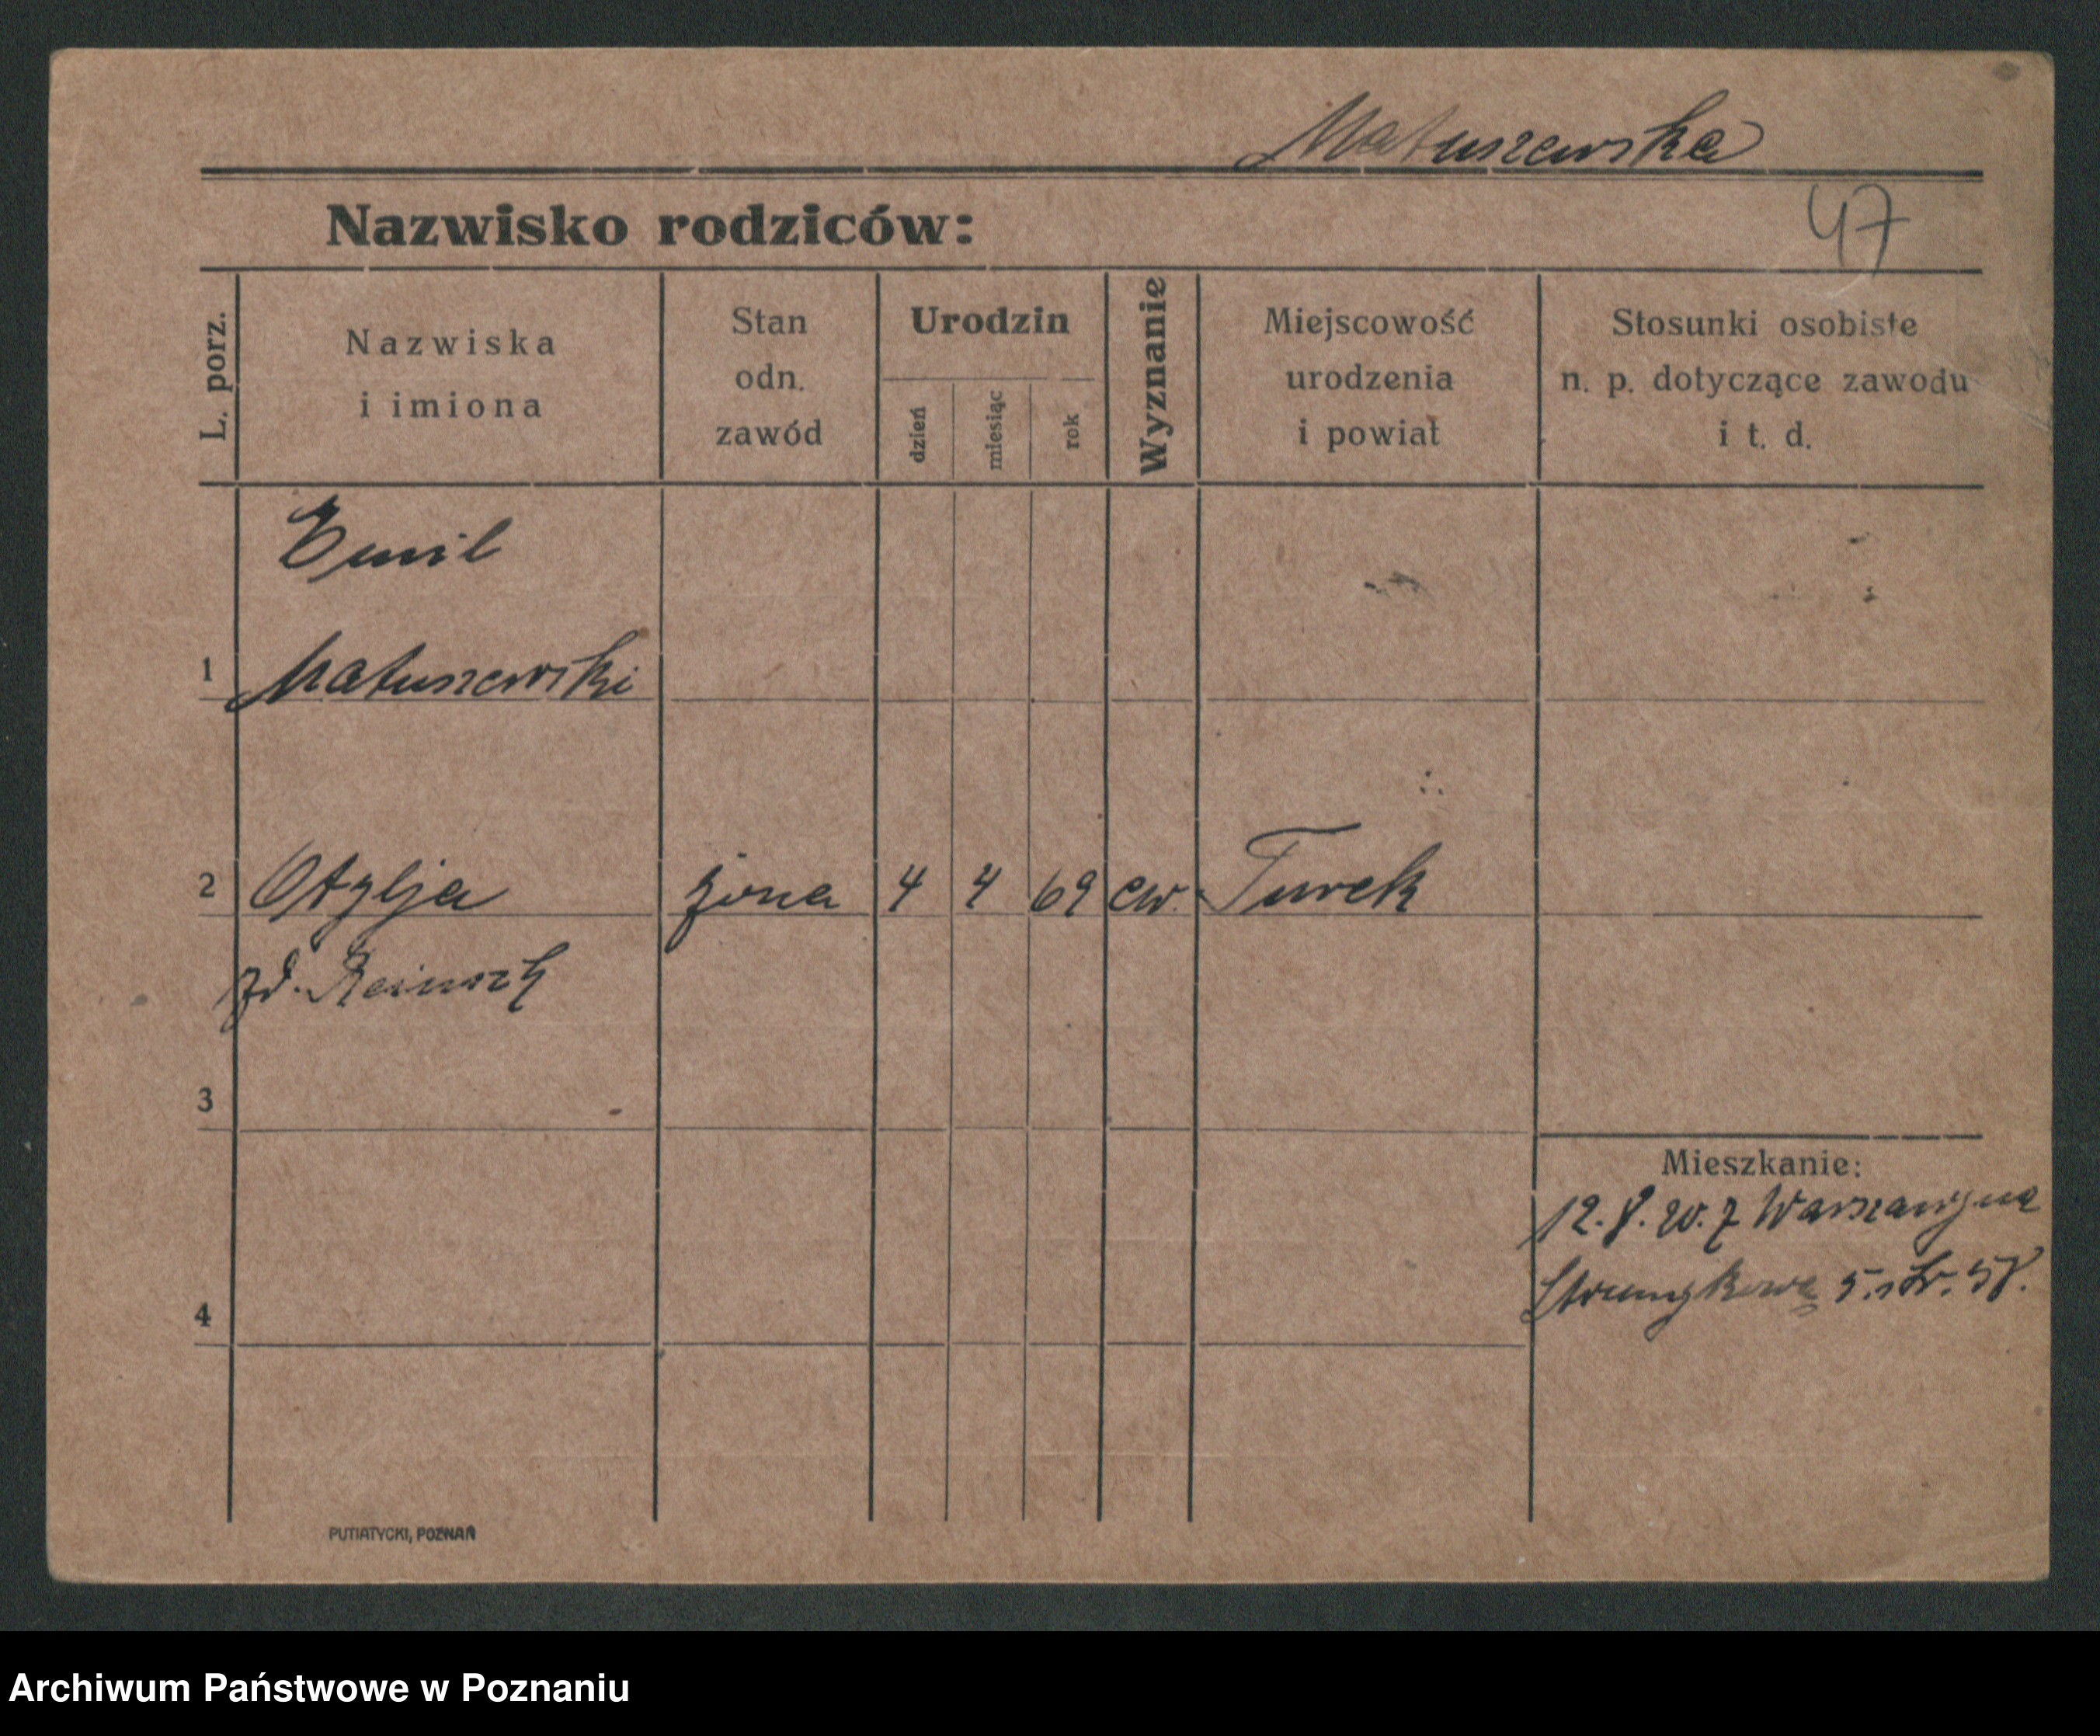 Matuszewska
Nazwisko rodziców:
47
L. porz.
Nazwiska
i imiona
Stan
odn.
zawód
Urodzin
dzień
miesiąc
rok
Wyznanie
Miejscowość
urodzenia
i powiat
Stosunki osobiste
n. p. dotyczące zawodu
i t. d.
Emil
1 Matuszewski
2 Otylja żona 4 4 69 ew. Turek
zd.
3
Mieszkanie:
12. 8. 20. z
5. 58.
4
PUTIATYCKI, POZNAŃ
Archiwum Państwowe w Poznaniu